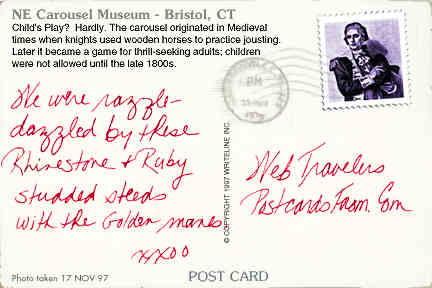 NE Carousel Museum - Bristol, CT
Child's Play? Hardly. The carousel originated in Medieval
times when knights used wooden horses to practice jousting.
Later it became a game for thrill-seeking adults; children
were not allowed until the late 1800s.
We were razzle-
dazzled by these
Rhinestone + Ruby
studded steeds
with the Golden manes
xxoo
Photo taken 17 NOV 97
© COPYRIGHT 1997 WRITELINE INC.
PM
Web Travelers
PostcardsFrom.Com
POST CARD